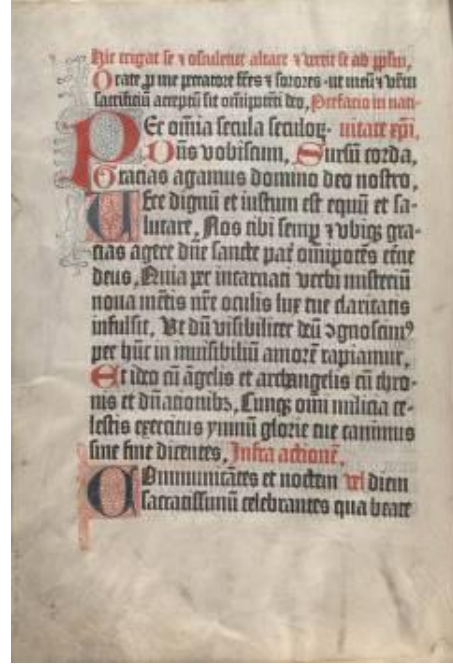 Hic erigat se ⁊ osculetur altare ⁊ vertit se ad ppłm,
Orate ꝓ me peccatore frēs ⁊ sorores · ut meū ⁊ vr̄m
sacrificiū acceptū sit om̄ipotēti deo, Prefacio in nati-
PEr om̄ia secula seculoꝝ· uitate xpi,
Dn̄s vobiscum, Sursū corda,
Gracias agamus domino deo nostro,
UEre dignū et iustum est equū et sa-
lutare, Nos tibi semꝑ ⁊ vbiqꝫ gra-
cias agere dn̄e sancte pat̄ om̄ipotēs et̄ne
deus, Quia per incarnati verbi misteriū
noua mētis nr̄e oculis lux tue claritatis
infulsit, Vt dū visibiliter deū ꝯgnoscimꝰ
per hūc in inuisibiliū amorē rapiamur,
Et ideo cū āgelis et archangelis cū thro-
nis et dn̄acionibꝫ, Cunqꝫ om̄i milicia ce-
lestis exercitus ymnū glorie tue canimus
sine fine dicentes, Infra actionē,
COmmunicātes et noctem vel diem
sacratissimū celebrantes qua beate